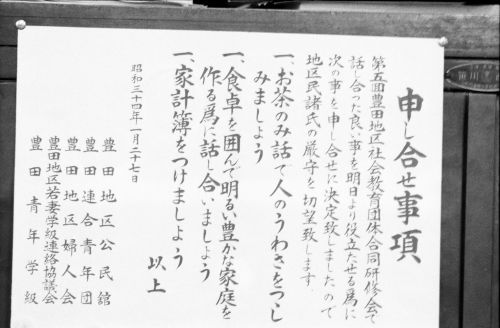 申し合せ事項
第五回豊田地区社会教育団体合同研修会で
話し合った良い事を明日より役立たせる為に
次の事を申し合せに決定致しましたので
地区民諸氏の厳守を切望致します.
一、お茶のみ話で人のうわさをつゝし
みましよう
一、食卓を囲んで明るい豊かな家庭を
作る為に話し合いましよう
一、家計簿をつけましよう
以上
昭和三十四年一月二十七日
豊田地区公民館
豊田連合青年団
豊田地区婦人会
豊田地区若妻学級連絡協議会
豊田青年学級